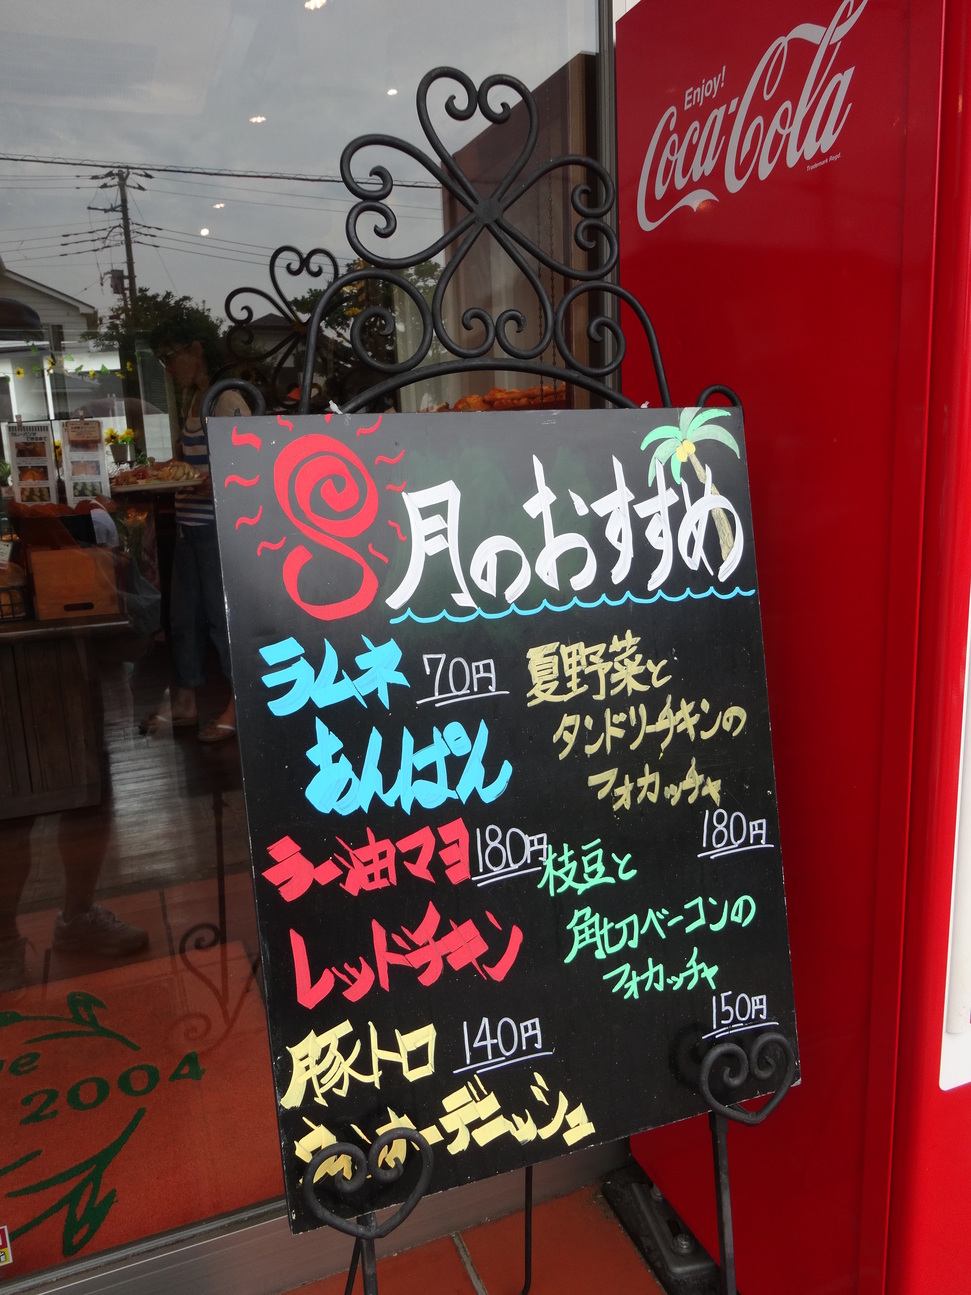 Enjoy!
Coca-Cola
Trademark Regd.
8月のおすすめ
ラムネ 70円
あんぱん
ラー油マヨ 180円
レッドチキン
豚トロ 140円
デニッシュ
夏野菜と
タンドリーチキンの
フォカッチャ
180円
枝豆と
角切ベーコンの
フォカッチャ
150円
2004